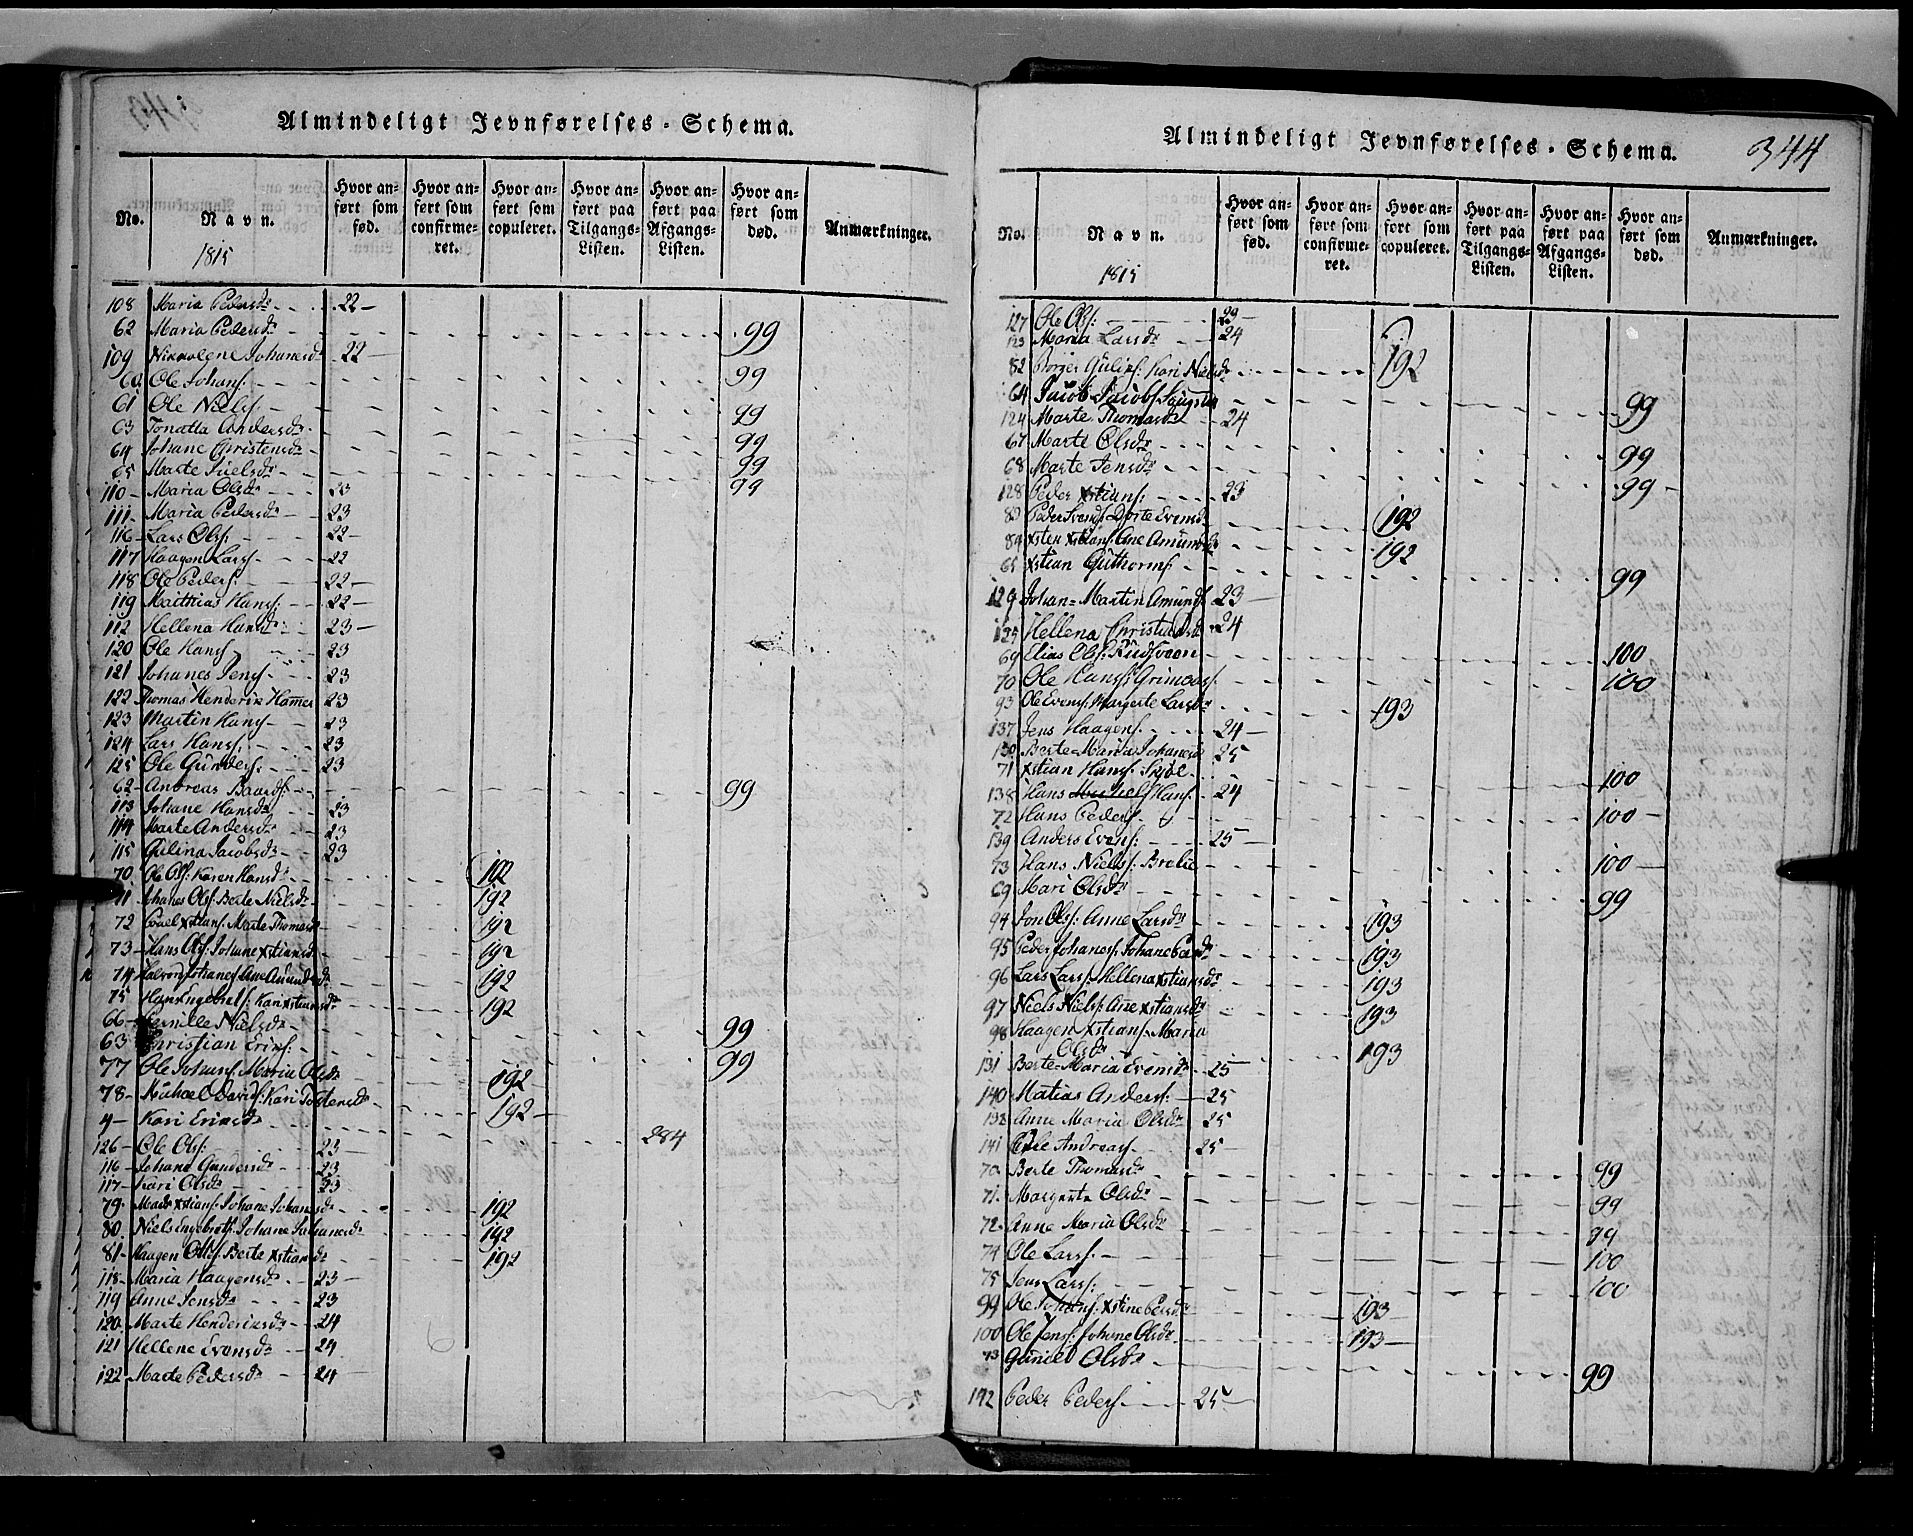 Almindeligt Jevnførelses-Schema.
No. Navn. 1815 Hvor anført som fød. Hvor anført som confirmeret. Hvor anført som copuleret. Hvor anført paa Tilgangs-Listen. Hvor anført paa Afgangs-Listen. Hvor anført som død. Anmærkninger.
108 Maria Pedersdr 22
62 Maria Pedersdr 99
109 Nikkolene Johanesdr 22
60 Ole Johans. 99
61 Ole Niels. 99
63 Jonatta Andersdr 99
64 Johane Christensdr 99
65 Marte Juelsdr 99
110 Maria Olsdr 23
111 Maria Pedersdr 23
116 Lars Ols: 22
117 Haagen Lars. 22
118 Ole Peders. 22
119 Matthias Hans: 22
112 Hellena Hansdr 23
120 Ole Hans 23
121 Johanes Jens. 23
122 Thomas Henderik Hamer 23
123 Martin Hans 23
124 Lars Hans. 23
125 Ole Gunders. 23
62 Andreas Baards: 99
113 Johane Hansdr 23
114 Marte Andersdr 23
115 Gulina Jacobsdr 23
70 Ole Ols: Karen Hansdr 192
71 Johanes Ols: Berte Nielsdr 192
72 Pouel Xstians. Marte Thomasdr 192
73 Hans Ols: Johane Xstiansdr 192
74 Halvor Johanes Ane Amundsdr 192
75 Hans Engebrets: Kari Xstiansdr 192
66 Pernille Nielsdr 99
63 Christian Erics: 99
77 Ole Johans. Maria Olsdr 192
78 Michael Davids: Kari Tostensdr 192
4 Kari Ericsdr 284
126 Ole Ols: 23
116 Johane Gundersdr 23
117 Kari Olsdr 23
79 Mads Xstians. Johane Johansdr 192
80 Niels Engebrets. Johane Johanesdr 192
81 Haagen Ols: Berte Xstiansdr 192
118 Maria Haagensdr 23
119 Anne Jensdr 23
120 Marte Henderiksdr 24
121 Hellene Evensdr 24
122 Marte Pedersdr 24
Almindeligt Jevnførelses-Schema. 344
No. Navn. 1815 Hvor anført som fød. Hvor anført som confirmeret. Hvor anført som copuleret. Hvor anført paa Tilgangs-Listen. Hvor anført paa Afgangs-Listen. Hvor anført som død. Anmærkninger.
127 Ole Ols: 23
123 Maria Larsdr 24
82 Borger Guliks: Kari Nielsdr 192
64 Jacob Jacobs. 99
124 Marte Thomasdr 24
67 Marte Olsdr 99
68 Marte Jensdr 99
128 Peder Xstians: 23
83 Peder Svends. Dorte Evensdr 192
84 Xsten Xstians. Ane Amundsdr 192
65 Xstian Guthorms. 99
129 Johan=Martin Amunds 23
125 Hellena Christiansdr 24
69 Elias Ols: 100
70 Ole Hans: 100
93 Ole Evens: Margerte Larsdr 193
137 Jens Haagens. 24
130 Berte=Maria Johanesdr 25
71 Xstian Hans: 100
138 Hans Hans. 24
72 Hans Peders. 100
139 Anders Evens: 25
73 Hans Niels. 100
69 Mari Olsdr 99
94 Jon Ols: Anne Larsdr 193
95 Peder Johanes. Johane Persdr 193
96 Lars Lars. Hellena Xstiansdr 193
97 Niels Niels: Ane Xstiansdr 193
98 Haagen Xstians. Maria
Olsdr 193
131 Berte-Maria Evensdr 25
140 Matias Anders: 25
132 Anne Maria Olsdr 25
141 Andreas. 25
70 Berte Thomasdr 99
71 Margerte Olsdr 99
72 Anne Maria Olsdr 99
74 Ole Lars. 100
75 Jens Lars: 100
99 Ole Johans. Xstine Persdr 193
100 Ole Jens: Johane Olsdr 193
73 Guniel Olsdr 99
142 Peder Peders. 25